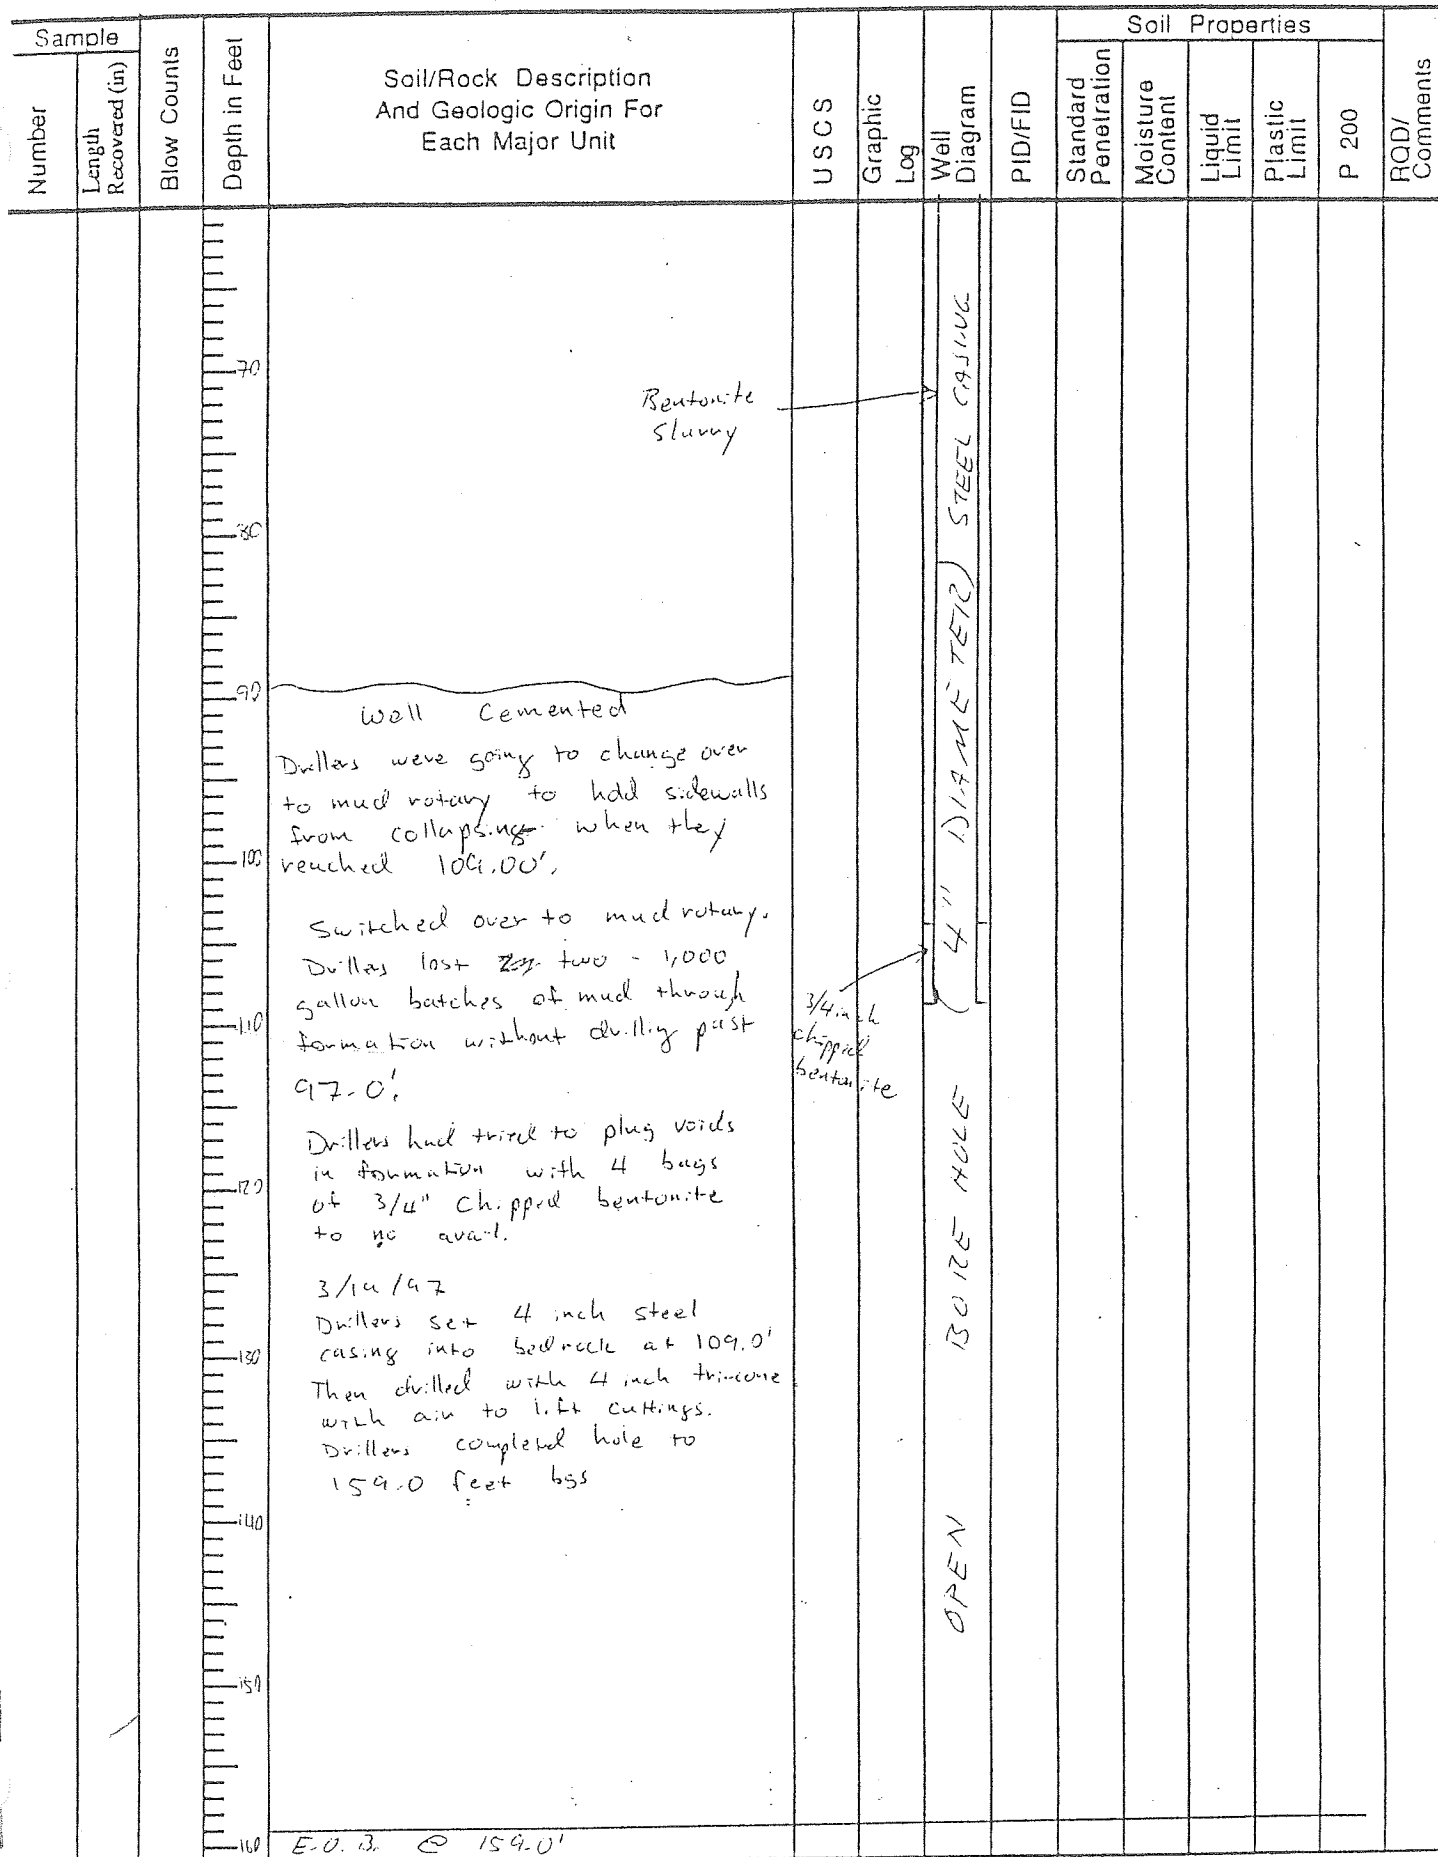 Sample
Number
Length
Recovered (in)
Blow Counts
Depth in Feet
Soil/Rock Description
And Geologic Origin For
Each Major Unit
USCS
Graphic
Log
Well
Diagram
PID/FID
Soil Properties
Standard
Penetration
Moisture
Content
Liquid
Limit
Plastic
Limit
P 200
RQD/
Comments
70
80
90
100
110
120
130
140
150
160
Bentonite
Slurry
Well Cemented
Drillers were going to change over
to mud rotary to hold sidewalls
from collapsing when they
reached 109.00'.
Switched over to mud rotary.
Drillers lost two - 1,000
gallon batches of mud through
formation without drillig past
97.0'.
Drillers had tried to plug voids
in formation with 4 bags
of 3/4" Chipped bentonite
to no avail.
3/19/97
Drillers set 4 inch steel
casing into bedrock at 109.0'
Then drilled with 4 inch tri-cone
with air to lift cuttings.
Drillers completed hole to
159.0 feet bgs
E.O.B. @ 159.0'
3/4 inch
chipped
bentonite
(4" DIAMETER) STEEL CASING
OPEN BORE HOLE